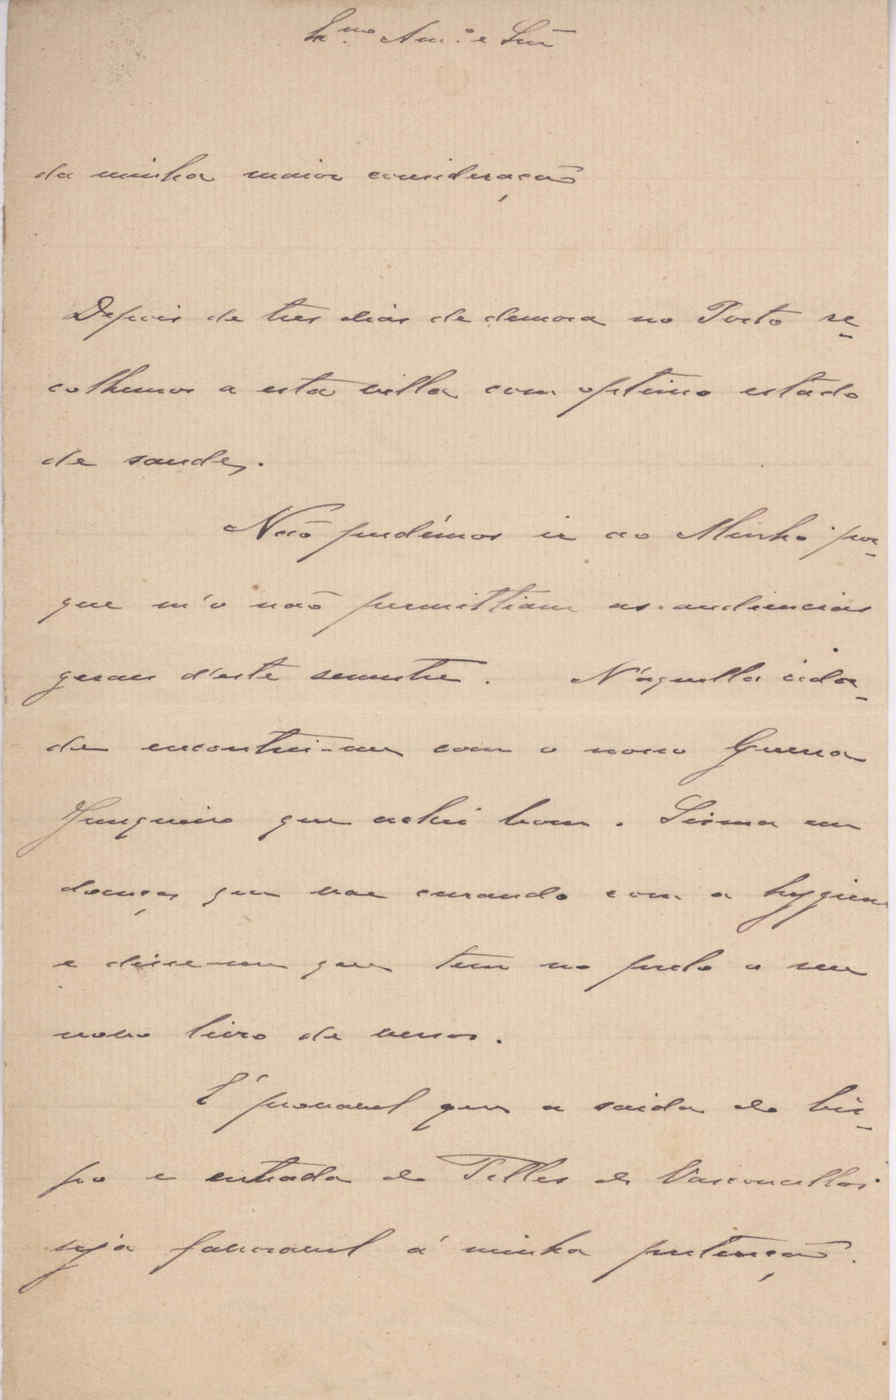 Ex.mo Am.o e Snr
da minha maior consideração
Depois de tres dias de demora no Porto re-
colhemos a esta villa com optimo estado
de saude.
Não pudémos ir ao Minho por-
que m'o não permittiam as audiencias
geraes d'este semestre. N'aquella cida-
de encontrei-me com o nosso Guerra
Junqueiro que achei bom. Scisma em
doenças que vae curando com a hygiene
e disse-me que tem no prelo o seu
novo livro de versos.
É provavel que a saida do bis-
po e entrada do Telles de Vasconcellos
seja favoravel á minha pretenção.